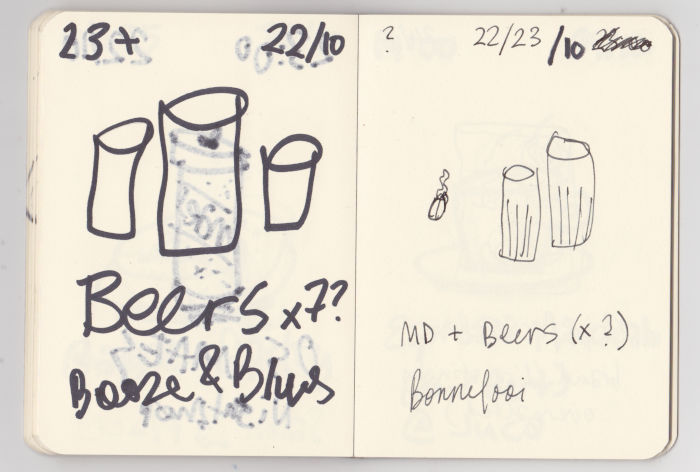 23+ 22/10
Beers x7?
Booze & Blues
? 22/23 /10
MD + Beers (x ?)
Bonnefooi